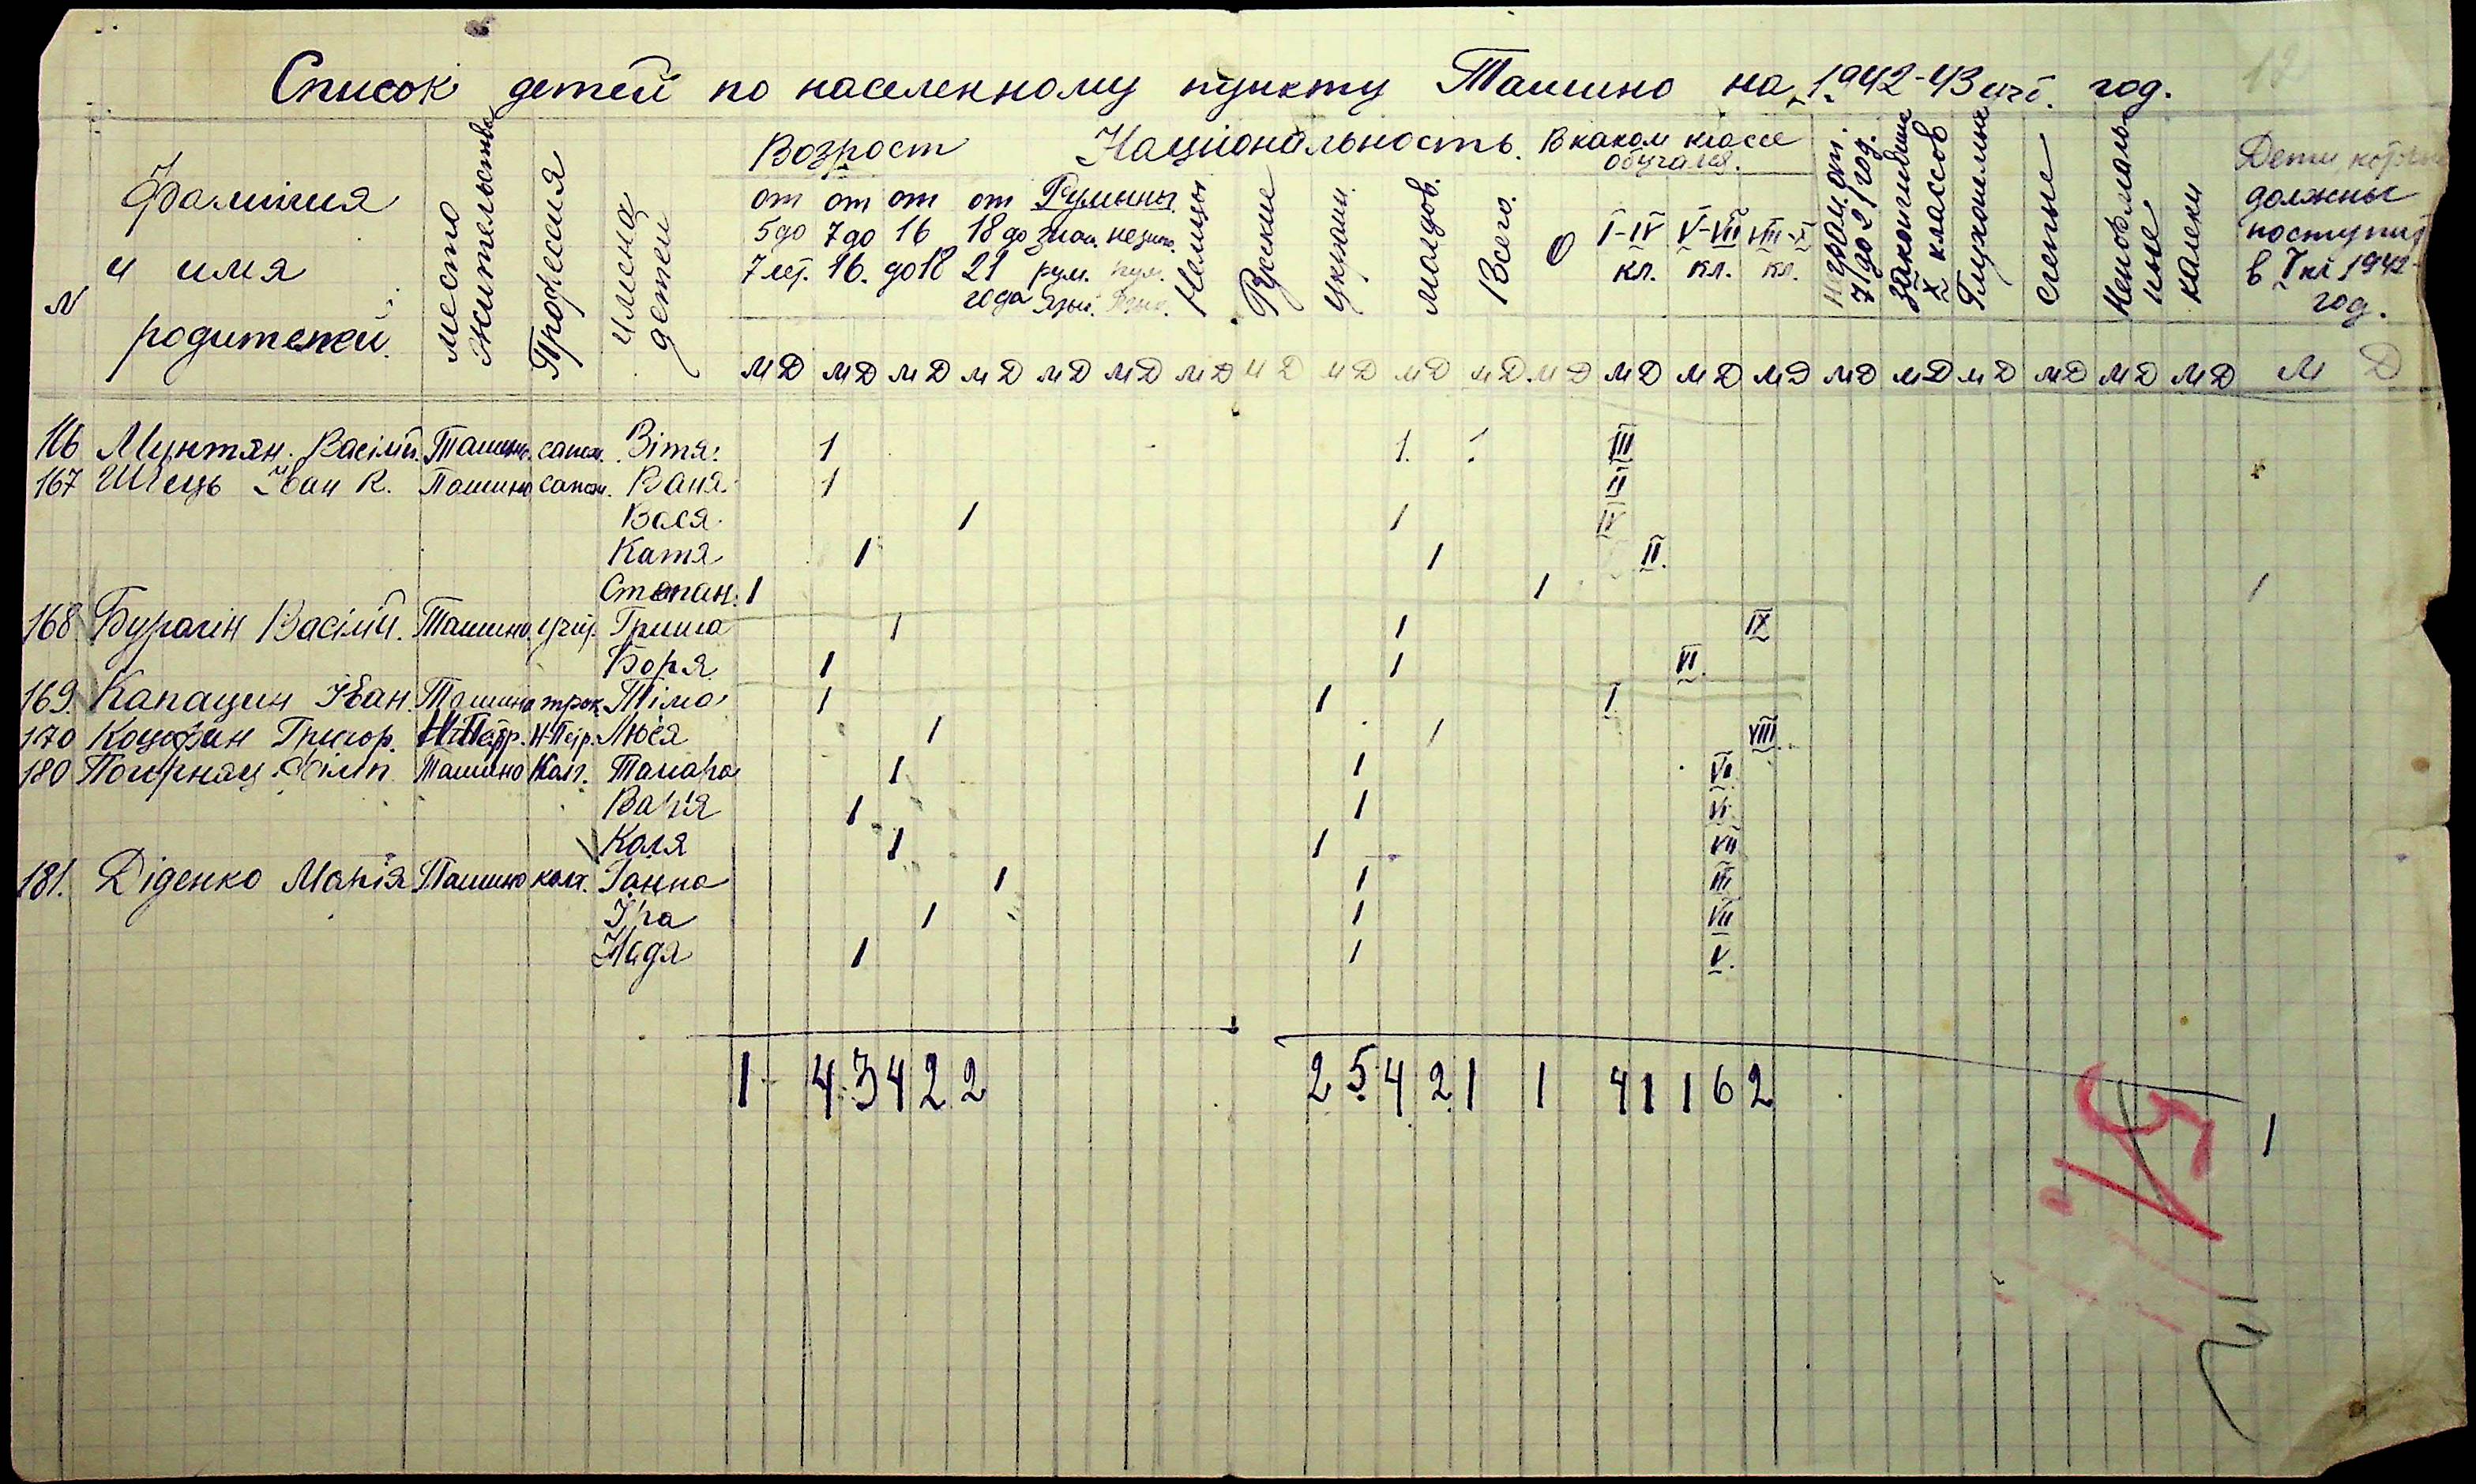 Список детей по населенному пункту Ташино на 1942-43 уч. год.
№ Фамилия и имя родителей
место жительства
Профессия
имена детей
Возрост
от 5 до 7 лет.
от 7 до 16.
от 16 до 18
от 18 до 21 года
Національность.
Румыны.
знаю. рум. язык.
Немцы
Руские
Украин.
Молдов.
Всего.
0
В каком классе обучался.
I-IV кл.
V-VII кл.
VIII-X кл.
неграм. от. 7 до 21 год.
закончившие X классов
Глухонемые
Слепые
Ненормальные
калеки
Дети, которые должны поступит в I кл 1942 год.
М Д М Д М Д М Д М Д М Д М Д М Д М Д М Д М Д М Д М Д М Д М Д М Д М Д М Д М Д М Д М Д М Д
166 Мунтян. Васілій. Ташино. сапож. Вітя. 1 1. 1 III
167 Швець Іван К. Ташино сапож. Ваня. 1 II
Вася. 1 1 IV
Катя 1 1 II.
Степан. 1 1 1
168 Бурагін Василій. Ташино. учит. Гриша 1 1 IX
Боря 1 1 VI.
169. Капацин Іван. Ташино трак. Тіма 1 1 I
170 Коцофан Григор. Н-Петр. Люся 1 1 VIII.
180 Філип Ташино Колг. Тамара 1 1 VI.
Варя 1 1 VI
Коля 1 1 VII
181. Діденко Марія Ташино колг. Ганна 1 1 III
Іра 1 1 VII
Надя 1 1 V.
1 4 3 4 2 2 2 5 4 2 1 1 4 1 1 6 2 1